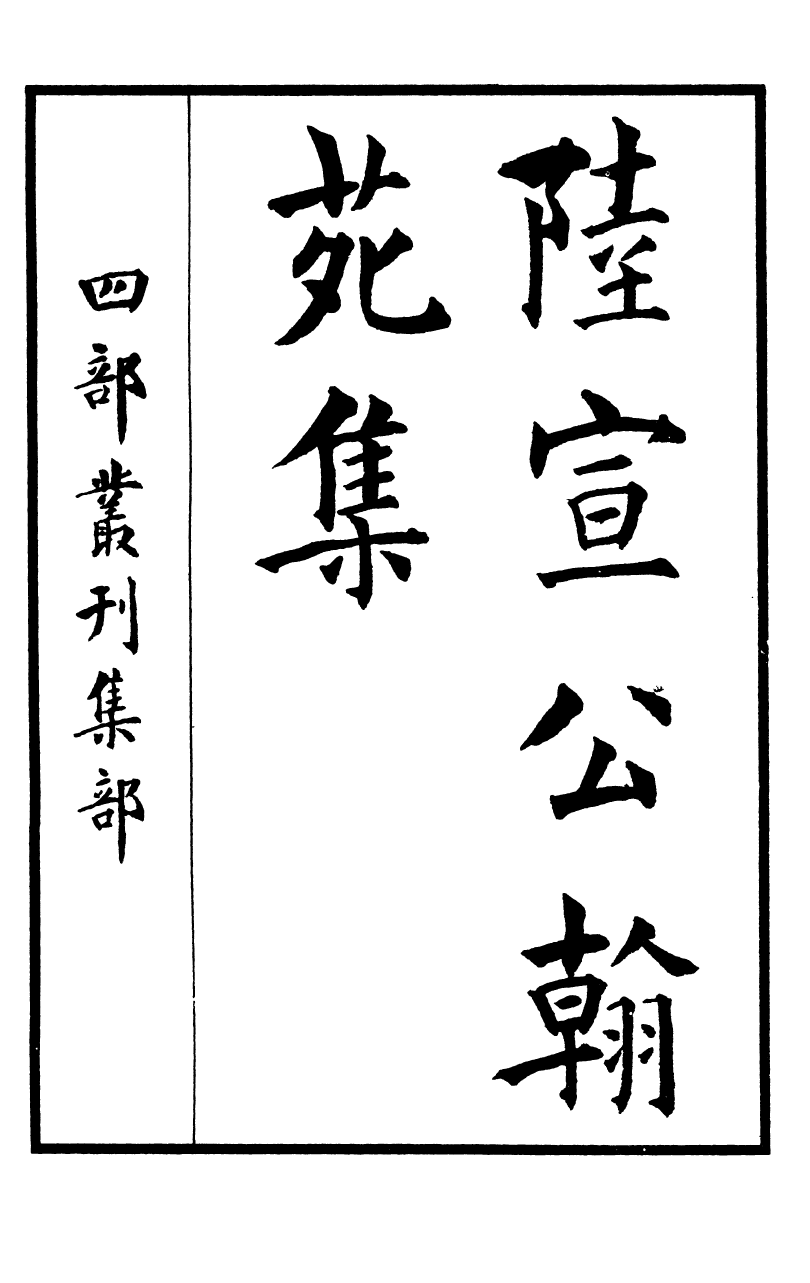 陸宣公翰
苑集
四部叢刊集部